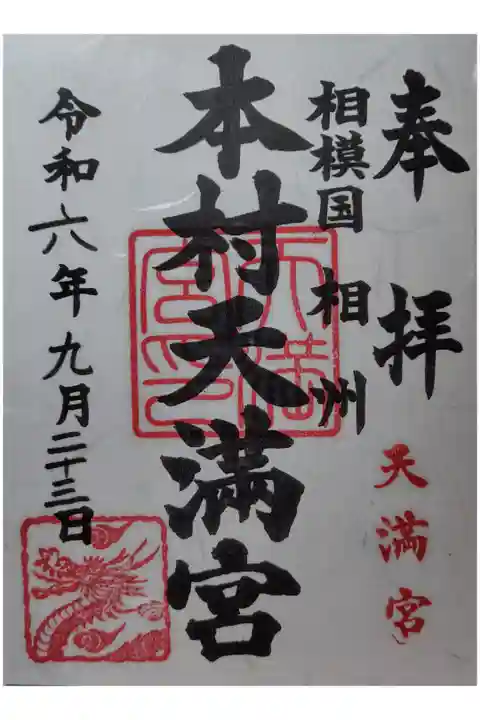 奉拝
天満宮
相模国 相州
本村天満宮
天満宮印
令和六年九月二十三日